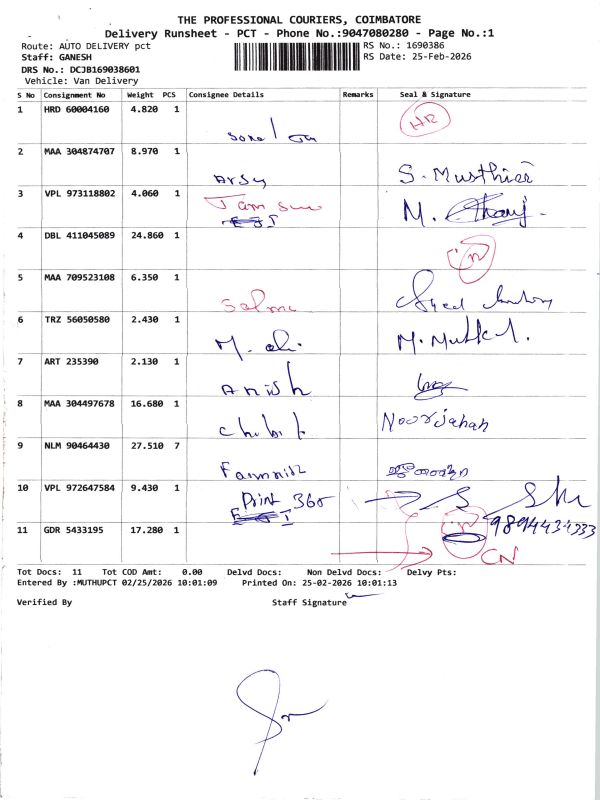 THE PROFESSIONAL COURIERS, COIMBATORE
Delivery Runsheet - PCT - Phone No.:9047080280 - Page No.:1
Route: AUTO DELIVERY pct
RS No.: 1690386
Staff: GANESH
RS Date: 25-Feb-2026
DRS No.: DCJB169038601
Vehicle: Van Delivery
S No Consignment No Weight PCS Consignee Details Remarks Seal & Signature
1 HRD 60004160 4.820 1 HR
2 MAA 304874707 8.970 1 S. Musthier
3 VPL 973118802 4.060 1 M.
4 DBL 411045089 24.860 1 in
5 MAA 709523108 6.350 1 Selma
6 TRZ 56050580 2.430 1 M. ali
7 ART 235390 2.130 1 Anish
8 MAA 304497678 16.680 1 Noorjahan
9 NLM 90464430 27.510 7
10 VPL 972647584 9.430 1 Print 360
11 GDR 5433195 17.280 1 in 9894434333
CN
Tot Docs: 11 Tot COD Amt: 0.00 Delvd Docs: Non Delvd Docs: Delvy Pts:
Entered By :MUTHUPCT 02/25/2026 10:01:09 Printed On: 25-02-2026 10:01:13
Verified By Staff Signature